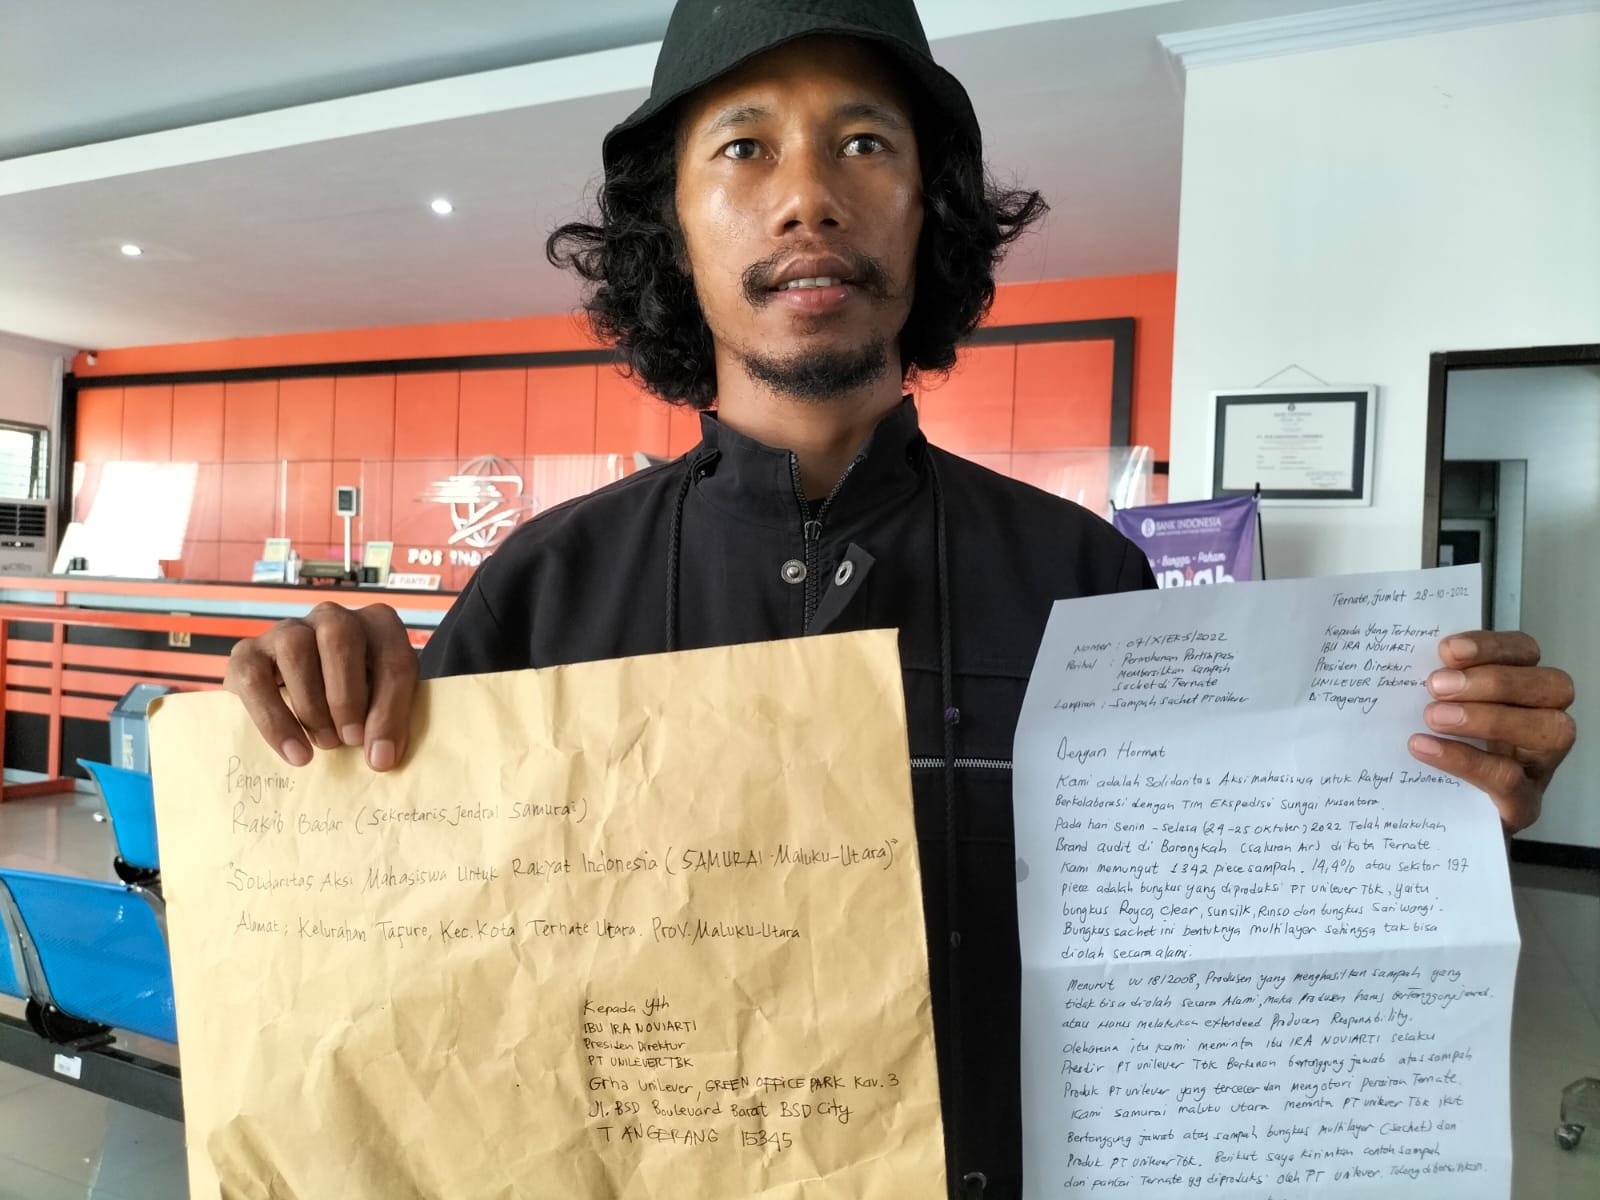 POS INDO
FANTI
02
BANK INDONESIA
Bangga - Paham
Pengirim;
Rakib Badar (Sekretaris Jendral Samurai)
"Solidaritas Aksi Mahasiswa Untuk Rakyat Indonesia (SAMURAI-Maluku-Utara)"
Alamat; Kelurahan Tafure, Kec. Kota Ternate Utara. Prov. Maluku-Utara
Kepada Yth
IBU IRA NOVIARTI
Presiden Direktur
PT UNILEVER TBK
Grha Unilever, GREEN OFFICE PARK Kav. 3
Jl. BSD Boulevard Barat BSD City
TANGERANG 15345
Ternate, Jumlat 28-10-2022
Nomer : 07/X/EKS/2022
Perihal : Permohonan Partisipasi
Membersihkan Sampah
Sachet di Ternate
Lampiran : Sampah Sachet PT Unilever
Kepada Yang Terhormat
IBU IRA NOVIARTI
Presiden Direktur
UNILEVER Indonesia
Di Tangerang
Dengan Hormat
Kami adalah Solidaritas Aksi mahasiswa untuk Rakyat Indonesia
Berkolaborasi dengan Tim Ekspedisi Sungai Nusantara.
Pada hari Senin - Selasa (24-25 Oktober) 2022 Telah melakukan
Brand audit di Barangkah (Saluran Air) di Kota Ternate.
Kami memungut 1342 piece sampah. 14,4% atau Sekitar 197
piece adalah bungkus yang diproduksi PT Unilever Tbk, yaitu
bungkus Royco, Clear, Sunsilk, Rinso dan bungkus Sari Wangi.
Bungkus sachet ini bentuknya multilayer sehingga tak bisa
diolah secara alami.
Menurut UU 18/2008, Produsen yang menghasilkan sampah yang
tidak bisa diolah secara Alami, maka Produsen harus bertanggungjawab.
atau Harus melakukan extendeed Producen Responsibility.
Olehkarena itu kami meminta Ibu IRA NOVIARTI selaku
Presdir PT Unilever Tbk Berkenan bertanggung jawab atas sampah
Produk PT Unilever yang tercecer dan mengotori perairan Ternate.
Kami Samurai Maluku Utara meminta PT Unilever Tbk ikut
Bertanggung jawab atas sampah bungkus Multilayer (Sachet) dari
Produk PT Unilever Tbk. Berikut saya kirimkan contoh sampah
dari pantai Ternate yg diproduksi oleh PT Unilever. Tolong dibersihkan.